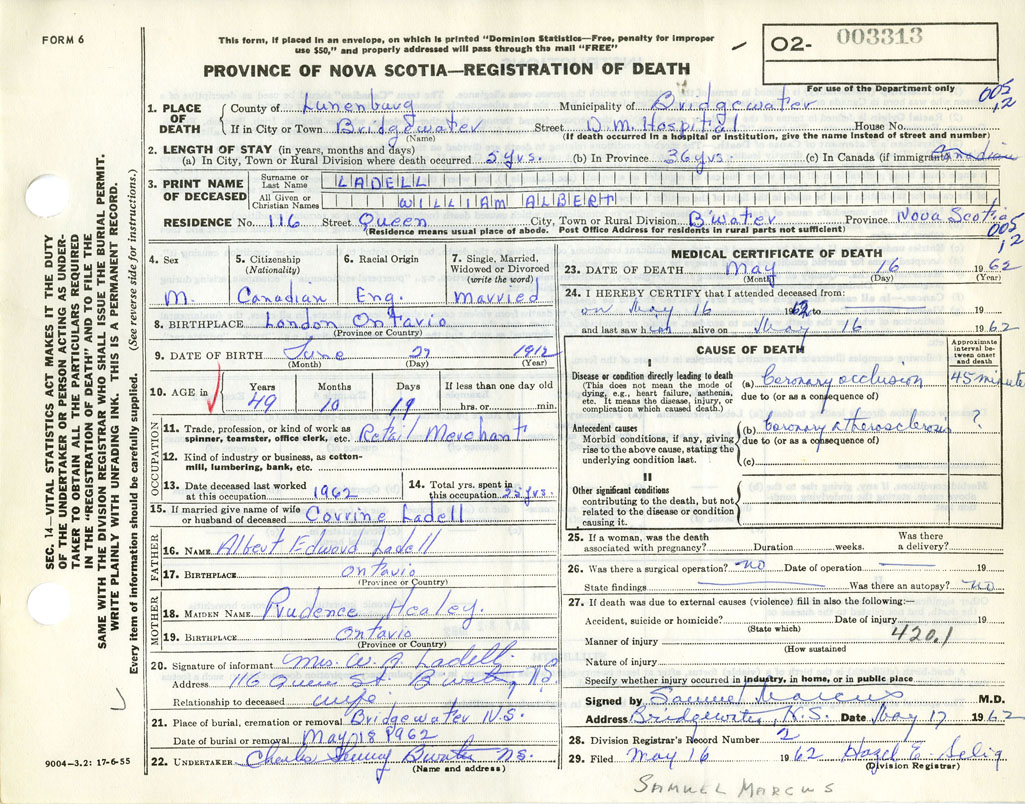 FORM 6
This form, if placed in an envelope, on which is printed "Dominion Statistics—Free, penalty for improper
use $50," and properly addressed will pass through the mail "FREE"
O2- 003313
PROVINCE OF NOVA SCOTIA—REGISTRATION OF DEATH
For use of the Department only
005
12
1. PLACE OF DEATH
County of Lunenburg Municipality of Bridgewater
If in City or Town Bridgewater Street D.M. Hospital House No.
(Name) (If death occurred in a hospital or institution, give the name instead of street and number)
2. LENGTH OF STAY (in years, months and days)
(a) In City, Town or Rural Division where death occurred 5 yrs. (b) In Province 36 yrs. (c) In Canada (if immigrant) Canadian
3. PRINT NAME OF DECEASED
Surname or Last Name LADELL
All Given or Christian Names WILLIAM ALBERT
RESIDENCE No. 116 Street Queen City, Town or Rural Division B'water Province Nova Scotia
(Residence means usual place of abode. Post Office Address for residents in rural parts not sufficient)
005
12
4. Sex 5. Citizenship (Nationality) 6. Racial Origin 7. Single, Married, Widowed or Divorced (write the word)
M. Canadian Eng. Married
8. BIRTHPLACE London Ontario
(Province or Country)
9. DATE OF BIRTH June 27 1912
(Month) (Day) (Year)
10. AGE in Years Months Days If less than one day old
49 10 19 hrs. or min.
OCCUPATION
11. Trade, profession, or kind of work as spinner, teamster, office clerk, etc. Retail Merchant
12. Kind of industry or business, as cotton-mill, lumbering, bank, etc.
13. Date deceased last worked at this occupation 1962
14. Total yrs. spent in this occupation 25 yrs.
15. If married give name of wife or husband of deceased Corrine Ladell
FATHER
16. NAME Albert Edward Ladell
17. BIRTHPLACE Ontario
(Province or Country)
MOTHER
18. MAIDEN NAME Prudence Healey.
19. BIRTHPLACE Ontario
(Province or Country)
20. Signature of informant Mrs. W. A. Ladell
Address 116 Queen St. Bwater N.S.
Relationship to deceased wife
21. Place of burial, cremation or removal Bridgewater N.S.
Date of burial or removal May 18 1962
22. UNDERTAKER Charles Bwater N.S.
(Name and address)
MEDICAL CERTIFICATE OF DEATH
23. DATE OF DEATH May 16 1962
(Month) (Day) (Year)
24. I HEREBY CERTIFY that I attended deceased from:
on May 16 1962 to 19
and last saw him alive on May 16 1962
CAUSE OF DEATH
Approximate interval between onset and death
I
Disease or condition directly leading to death
(This does not mean the mode of dying, e.g., heart failure, asthenia, etc. It means the disease, injury, or complication which caused death.)
(a) Coronary occlusion 45 minutes
due to (or as a consequence of)
Antecedent causes
Morbid conditions, if any, giving rise to the above cause, stating the underlying condition last.
(b) Coronary atherosclerosis ?
due to (or as a consequence of)
(c)
II
Other significant conditions
contributing to the death, but not related to the disease or condition causing it.
25. If a woman, was the death associated with pregnancy? Duration weeks. Was there a delivery?
26. Was there a surgical operation? no Date of operation 19
State findings Was there an autopsy? no
27. If death was due to external causes (violence) fill in also the following:—
Accident, suicide or homicide? Date of injury 19
(State which)
420.1
Manner of injury
(How sustained
Nature of injury
Specify whether injury occurred in industry, in home, or in public place
Signed by Samuel Marcus M.D.
Address Bridgewater, N.S. Date May 17 1962
28. Division Registrar's Record Number 2
29. Filed May 16 1962 Hazel E. Selig
(Division Registrar)
SAMUEL MARCUS
SEC. 14—VITAL STATISTICS ACT MAKES IT THE DUTY
OF THE UNDERTAKER OR PERSON ACTING AS UNDER-
TAKER TO OBTAIN ALL THE PARTICULARS REQUIRED
IN THE "REGISTRATION OF DEATH" AND TO FILE THE
SAME WITH THE DIVISION REGISTRAR WHO SHALL ISSUE THE BURIAL PERMIT.
WRITE PLAINLY WITH UNFADING INK. THIS IS A PERMANENT RECORD.
Every item of information should be carefully supplied. (See reverse side for instructions.)
9004—3.2: 17-6-55